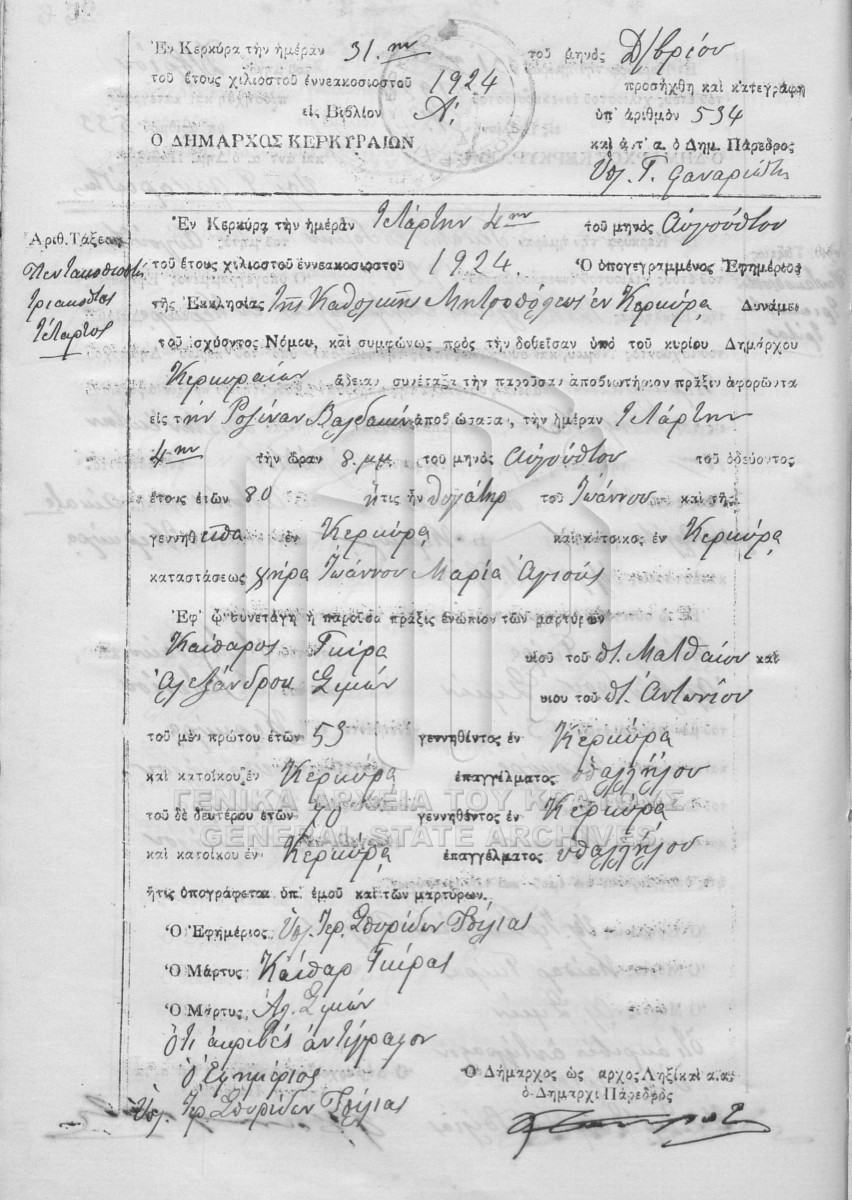 Ἐν Κερκύρᾳ τὴν ἡμέραν 31.ην τοῦ μηνὸς Δ/βρίου
τοῦ ἔτους χιλιοστοῦ ἐννεακοσιοστοῦ 1924 προσήχθη καὶ κατεγράφη
εἰς Βιβλίον Α' ὑπ' ἀριθμὸν 534
Ο ΔΗΜΑΡΧΟΣ ΚΕΡΚΥΡΑΙΩΝ καὶ ἀ.τ.α. ὁ Δημ. Πάρεδρος
Ὑπ. Γ.
Ἀριθ. Τάξεως
Πεντακοσιοστὴ
τριακοστὸς
τέταρτος
Ἐν Κερκύρᾳ τὴν ἡμέραν Τετάρτην 4ην τοῦ μηνὸς Αὐγούστου
τοῦ ἔτους χιλιοστοῦ ἐννεακοσιοστοῦ 1924. Ὁ ὑπογεγραμμένος Ἐφημέριος
τῆς Ἐκκλησίας τῆς Καθολικῆς Μητροπόλεως ἐν Κερκύρᾳ Δυνάμει
τοῦ ἰσχύοντος Νόμου, καὶ συμφώνως πρὸς τὴν δοθεῖσαν ὑπὸ τοῦ κυρίου Δημάρχου
Κερκυραίων ἄδειαν συνέταξα τὴν παροῦσαν ἀποβιωτήριον πρᾶξιν ἀφορῶντα
εἰς τὴν Ροζίναν ἀποβιώσασα, τὴν ἡμέραν Τετάρτην
4ην τὴν ὥραν 8. μμ. τοῦ μηνὸς Αὐγούστου τοῦ ὁδεύοντος
ἔτους ἐτῶν 80 ἥτις ἦν θυγάτηρ τοῦ Ἰωάννου καὶ τῆς
γεννηθεῖσα ἐν Κερκύρᾳ καὶ κάτοικος ἐν Κερκύρᾳ
καταστάσεως χήρα Ἰωάννου Μαρία
Ἐφ' ᾧ συνετάγη ἡ παροῦσα πρᾶξις ἐνώπιον τῶν μαρτύρων
Καίσαρος Γκίρα υἱοῦ τοῦ Ματθαίου καὶ
Ἀλεξάνδρου Σιμὼν υἱοῦ τοῦ Ἀντωνίου
τοῦ μὲν πρώτου ἐτῶν 53 γεννηθέντος ἐν Κερκύρᾳ
καὶ κατοίκου ἐν Κερκύρᾳ ἐπαγγέλματος ὑπαλλήλου
τοῦ δὲ δευτέρου ἐτῶν 70 γεννηθέντος ἐν Κερκύρᾳ
ΓΕΝΙΚΑ ΑΡΧΕΙΑ ΤΟΥ ΚΡΑΤΟΥΣ
GENERAL STATE ARCHIVES
καὶ κατοίκου ἐν Κερκύρᾳ ἐπαγγέλματος ὑπαλλήλου
ἥτις ὑπογράφεται ὑπ' ἐμοῦ καὶ τῶν μαρτύρων.
Ὁ Ἐφημέριος Ὑπ. Ἱερ. Σπυρίδων
Ὁ Μάρτυς Καίσαρ Γκίρας
Ὁ Μάρτυς Ἀλ. Σιμών
Ὅτι ἀκριβὲς ἀντίγραφον
Ὁ Ἐφημέριος
Ὑπ. Ἱερ. Σπυρίδων
Ὁ Δήμαρχος ὡς αρχος Ληξίκαὶ α.α.
ὁ Δημαρχι Πάρεδρος